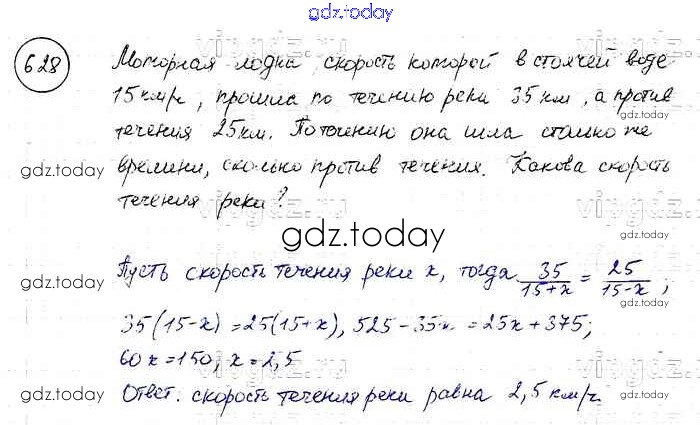 gdz.today
628
Моторная лодка скорость которой в стоячей воде
15 км/ч, прошла по течению реки 35 км, а против
gdz.today
течения 25 км. По течению она шла столько же
gdz.today
времени, сколько против течения. Какова скорость
gdz.today
течения реки?
gdz.today
Пусть скорость течения реки x, тогда 35/(15+x) = 25/(15-x);
gdz.today
35(15-x) = 25(15+x), 525-35x = 25x+375;
gdz.today
60x=150; x=2,5
gdz.today
Ответ. скорость течения реки равна 2,5 км/ч.